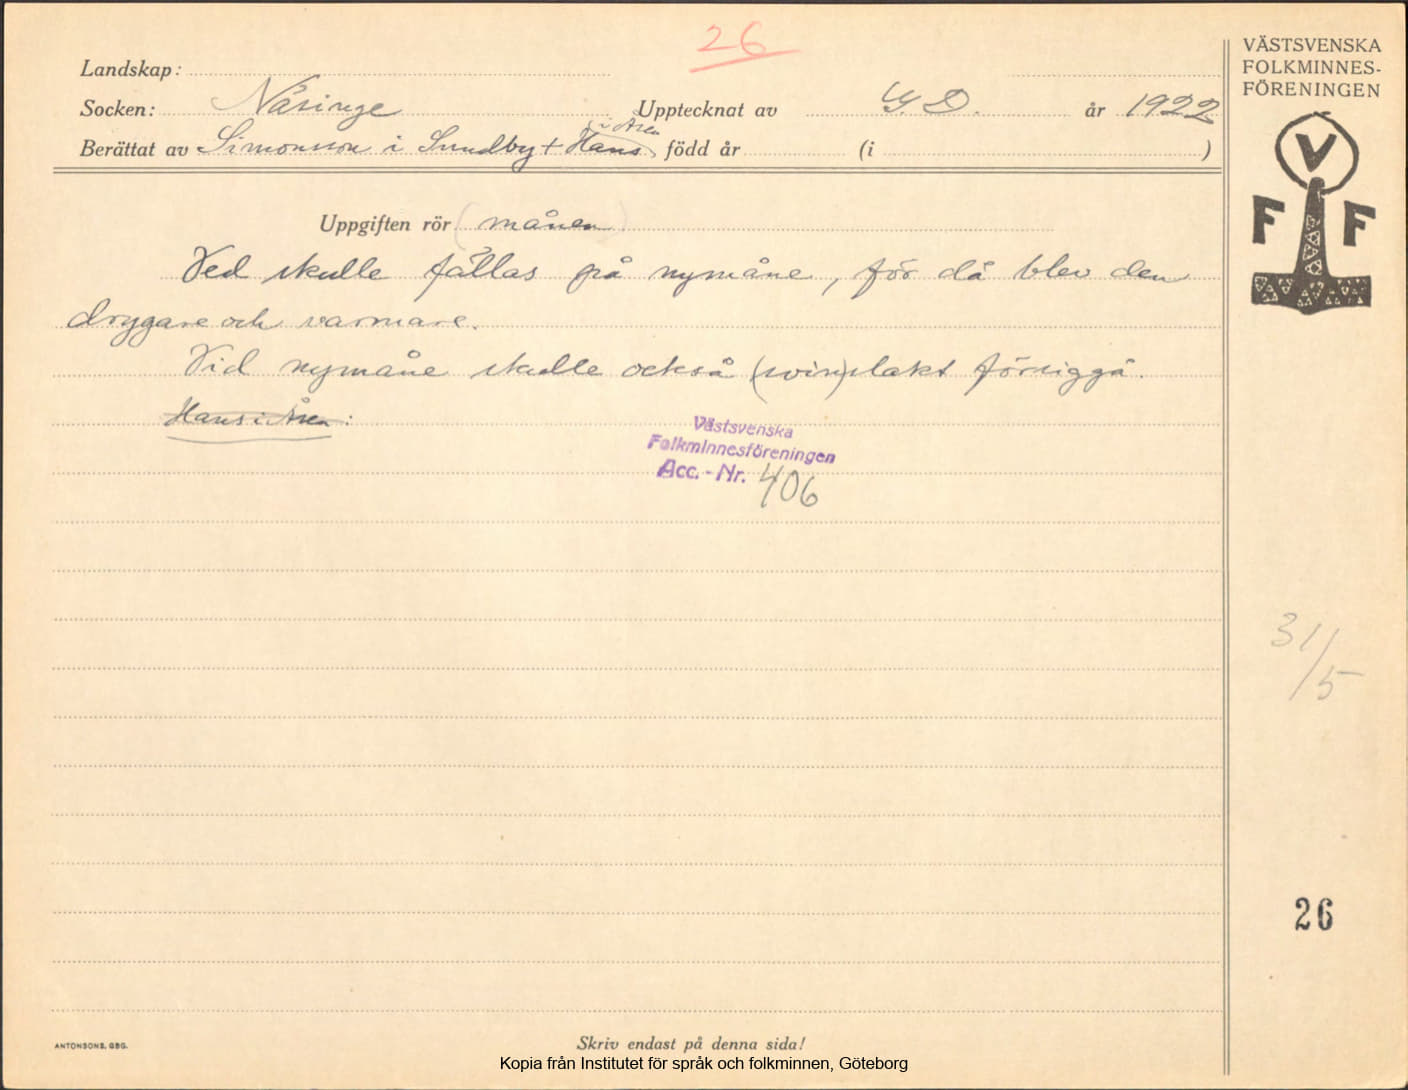 26
VÄSTSVENSKA
FOLKMINNES-
FÖRENINGEN
Landskap:
Socken: Näsinge Upptecknat av G. D. år 1922
i Åsen
Berättat av Simonsson i Sundby + Hans född år (i )
V
F F
Uppgiften rör (månen)
Ved skulle fällas på nymåne, för då blev den
drygare och varmare.
Vid nymåne skulle också (svin)slakt försiggå.
Hans i Åsen:
Västsvenska
Folkminnesföreningen
Acc.-Nr. 406
31/5
26
ANTONSONS, GBG.
Skriv endast på denna sida!
Kopia från Institutet för språk och folkminnen, Göteborg